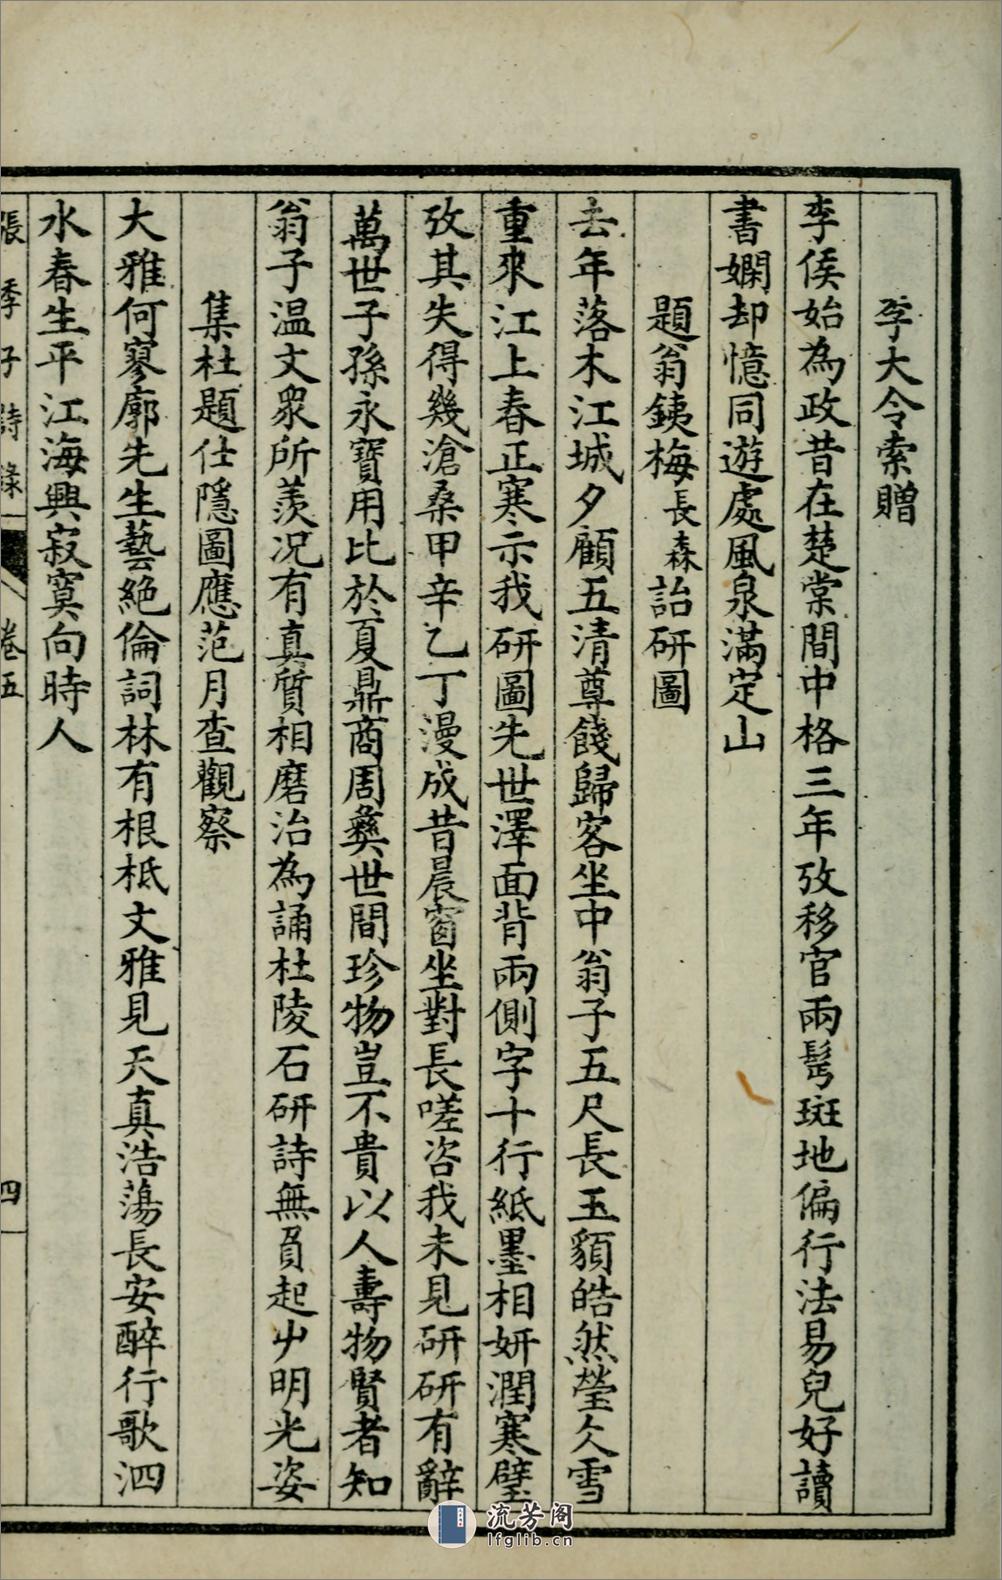 李大令索贈
李侯始為政昔在楚棠間中格三年攷移官兩鬂斑地偏行法易兒好讀
書嫻却憶同遊處風泉滿定山
題翁銕梅長森詒研圖
去年落木江城夕顧五清尊餞歸客坐中翁子五尺長玉頟皓然瑩仌雪
重來江上春正寒示我研圖先世澤面背兩側字十行紙墨相妍潤寒璧
攷其失得幾滄桑甲辛乙丁漫成昔晨窗坐對長嗟咨我未見研研有辭
萬世子孫永寶用比於夏鼎商周彝世間珍物豈不貴以人壽物賢者知
翁子温文眾所羨况有真質相磨治為誦杜陵石研詩無負起艸明光姿
集杜題仕隱圖應范月查觀察
大雅何寥廓先生藝絶倫詞林有根柢文雅見天真浩蕩長安醉行歌泗
水春生平江海興寂寞向時人
張季子詩錄
卷五
四
流芳阁
lfglib.cn